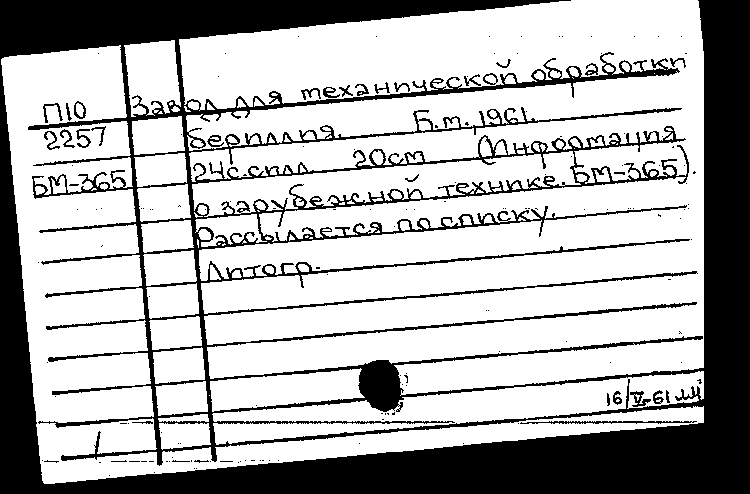 П10 Завод для механической обработки
2257 бериллия. Б.м., 1961.
24с.илл. 20см (Информация
БМ-365 о зарубежной технике. БМ-365).
Рассылается по списку.
Литогр.
16/V-61